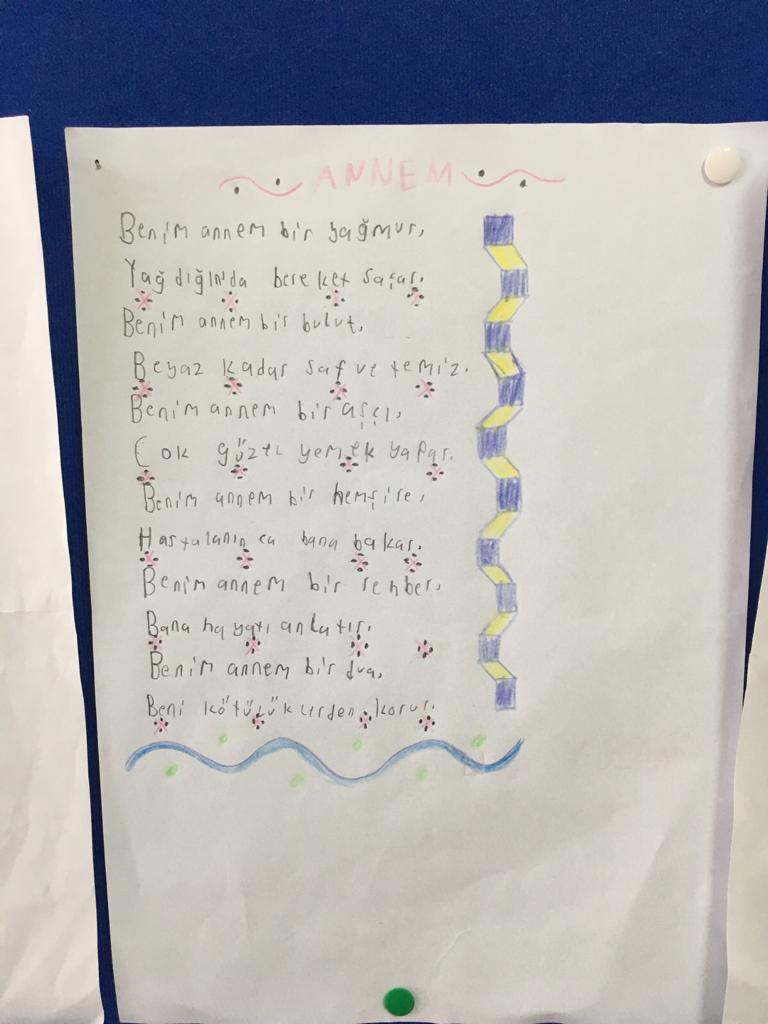 ANNEM
Benim annem bir yağmur,
Yağdığın'da bereket saçar.
Benim annem bir bulut,
Beyaz kadar saf ve temiz.
Benim annem bir aşçı,
Çok güzel yemek yapar.
Benim annem bir hemşire,
Hastalanınca bana bakar.
Benim annem bir rehber,
Bana hayatı anlatır.
Benim annem bir dua,
Beni kötülüklerden korur.